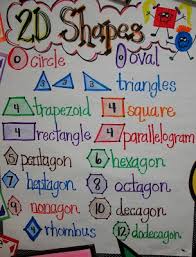 2D Shapes
0 circle 0 oval
3 3 3 triangles
4 trapezoid 4 square
4 rectangle 4 parallelogram
5 pentagon 6 hexagon
7 heptagon 8 octagon
9 nonagon 10 decagon
4 rhombus 12 dodecagon